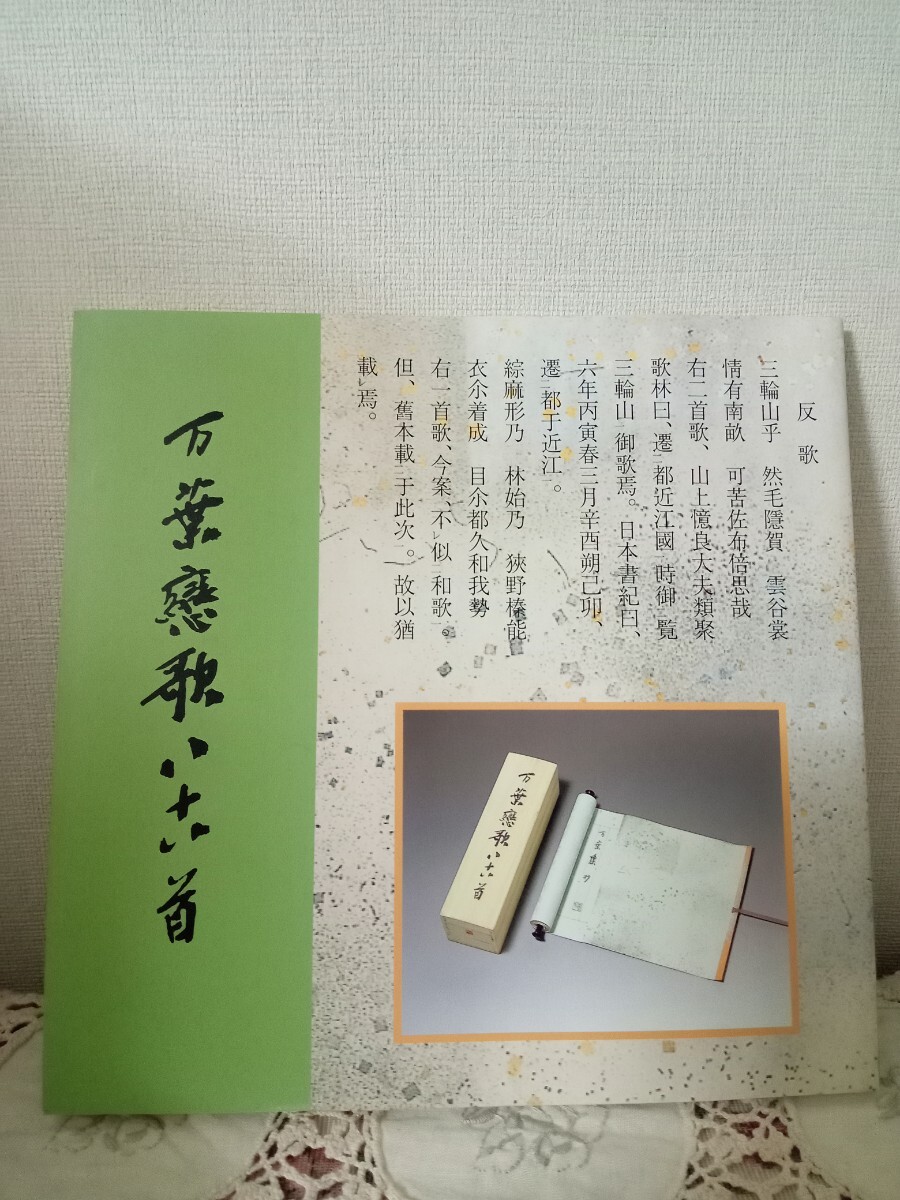 万葉戀歌八十八首
反歌
三輪山乎　然毛隱賀　雲谷裳
情有南畝　可苦佐布倍思哉
右二首歌、山上憶良大夫類聚
歌林曰、遷二都近江國一時御二覧
三輪山一御歌焉。日本書紀曰、
六年丙寅春三月辛酉朔己卯、
遷二都于近江一。
綜麻形乃　林始乃　狹野榛能
衣尒着成　目尒都久和我勢
右一首歌、今案、不レ似二和歌一。
但、舊本載二于此次一。故以猶
載レ焉。
万葉戀歌八十八首